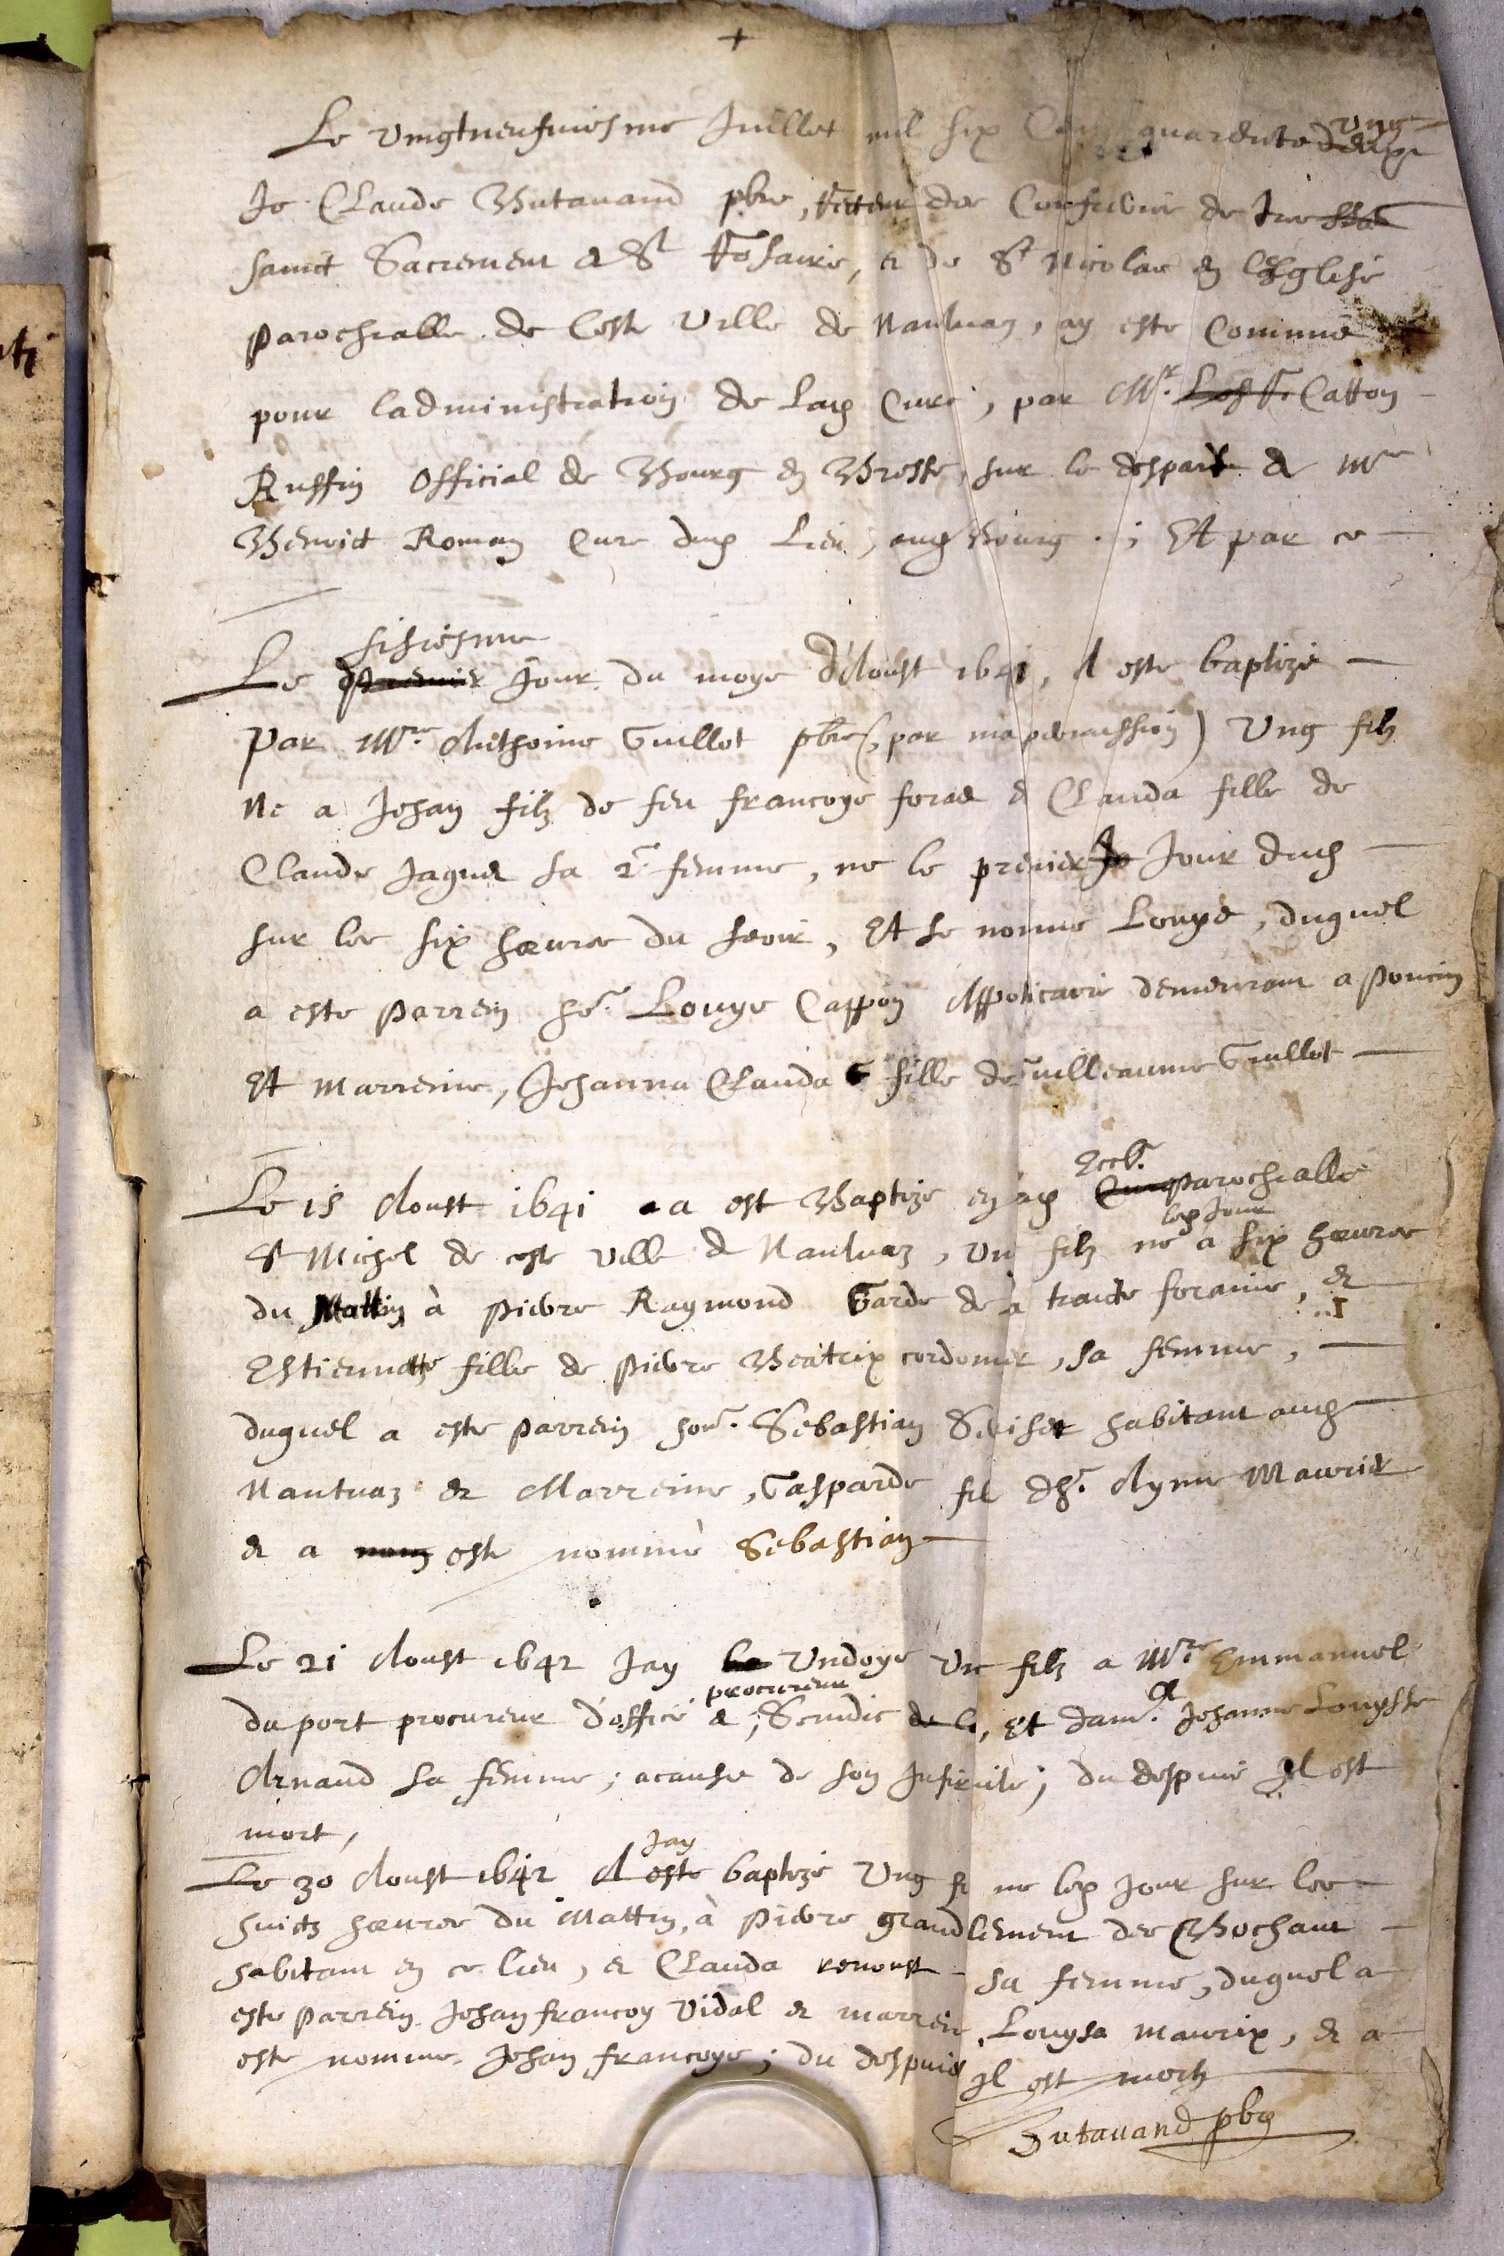 Le vingtneufviesme Juillet mil six Cens quarente ung
Je Claude Butavand pbre, Recteur des Confreries de tres
sainct Sacrement & St Rosaire, et de St Nicolas en l'Eglise
parochialle de Ceste Ville de Nantuaz, ay este Commis
pour ladministration de Lad Cure, par Mr. Catton
Ruffin Official de Bourg en Bresse, sur le despart de Mre
Benoict Roman Cure dud Lieu, aud Bourg .; Et par ce
sisiesme
Le jour du moys d'Aoust 1641, A este baptizé
Par Mre. Anthoine Guillot pbre (par ma permission) Ung filz
Ne a Jehan filz de feu francoys foras & Clauda fille de
Claude Jaguet sa 2e femme, ne le premier Jour dud
sur les six heures du soir, Et se nomme Louys, duquel
a este parrein he. Louys Cappon Appoticaire demeurant a Poncin
Et marreine, Jehanna Clauda fille de Guilleaume Guillot
Le 15 Aoust 1641 a est Baptize en lad Eccle. parochialle
St Michel de ceste ville de Nantuaz, un filz ne led jour a six heures
du Mattin à Pierre Raymond Garde de a traicte foraine, et
Estiennette fille de Pierre Beatrix cordonier, sa femme,
duquel a este parrein hone. Sebastian habitant aud
Nantuaz et Marreine, Gasparde fil dhe. Ayme Maurier
& a este nommé Sebastian
Le 21 Aoust 1642 Jay Undoyé Un filz a Mre Emmanuel
duport procureur d'office &, procureur Scindic, Et dame. Jehanne Louysse
Arnaud sa femme; acause de son Infirmité; du despuis Il est
mort,
Le 30 Aoust 1642 Jay baptizé Ung fi ne led jour sur les
huict heures du Mattin, à Pierre grandclement des Bochant
habitant en ce lieu, et Clauda sa femme, duquel a
este parrein Jehan francoy Vidal et marrein Louysa Maurix, & a
este nomme Jehan francoys; du despuis Il est mort
Butavand pbre